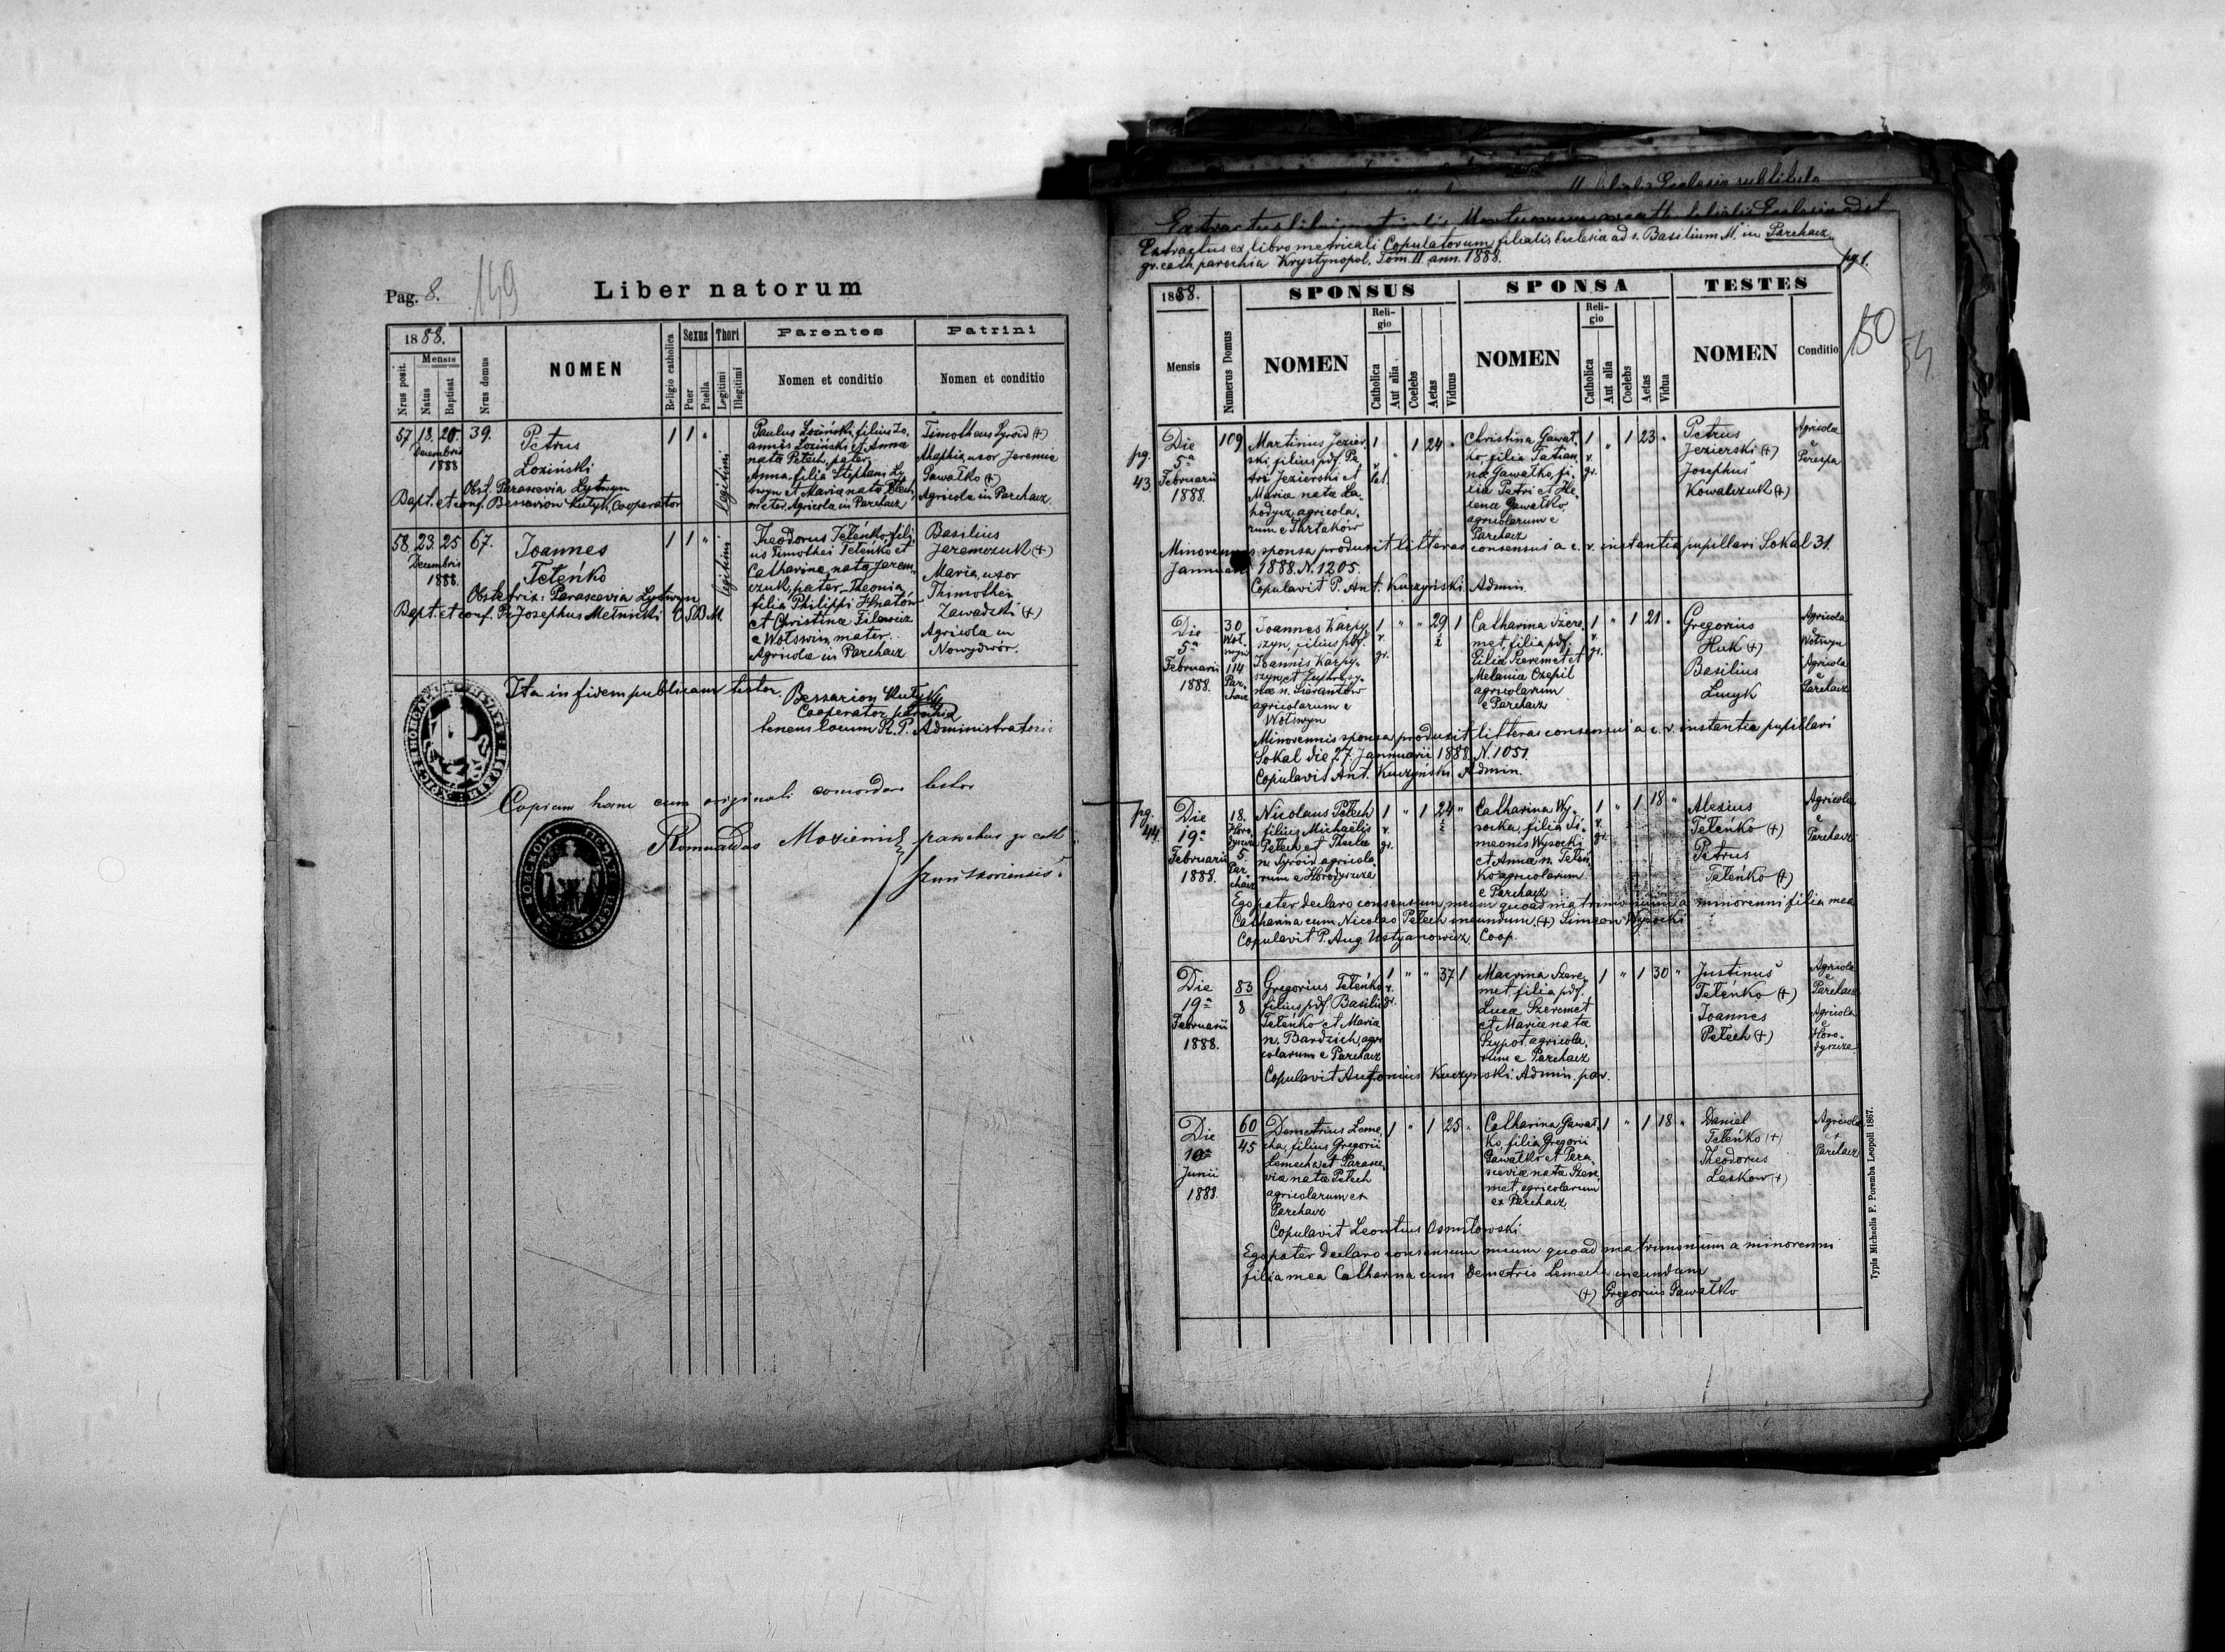 Pag. 8.
149
Liber natorum
1888.
Nrus posit.
Mensis
Natus
Baptisat
Nrus domus
NOMEN
Religio catholica
Sexus
Puer
Puella
Thori
Legitimi
Illegitimi
Parentes
Nomen et conditio
Patrini
Nomen et conditio
57. 18. 20. 39.
Decembris
1888
Petrus
Loziński
1 1 "
legitimi
Paulus Loziński, filius Jo-
annis Loziński et Anna
nata Petech, pater,
Anna filia Stephani Ly-
twyn et Maria nata Petech,
mater. Agricola in Parchacz
Timotheus Syroid (+)
Ahaphia, uxor Jeremie
Gawałko (+)
Agricola in Parchacz
Obst. Parascevia Lytwyn
Bapt. et conf. Bessarion Kutyk, Cooperator
58. 23. 25 67.
Decembris
1888.
Joannes
Teteńko
1 1 "
legitimi
Theodorus Teteńko, fili-
us Timothei Teteńko et
Catharina nata Jarem-
czuk, pater, Theonia,
filia Philippi Hnatów
et Christina Filewicz
e Wotswin, mater.
Agricolæ in Parchacz
Basilius
Jaremczuk (+)
Maria, uxor
Thimothei
Zawadzki (+)
Agricola in
Nowydwór.
Obstetrix: Parascevia Lytwyn
Bapt. et conf. Pr. Josephus Metnicki O.S.B.M.
Ita in fidem publicam testor.
Bessarion Kutyk
Cooperator parochiæ
tenens locum R. P. Administratoris
Copiam hanc cum originali concordare testor
Romualdus
parochus gr cath
Extractus ex libro metricali Copulatorum filialis Ecclesiæ ad s. Basilium M. in Parchacz,
gr. cath. parochia Krystynopol. Tom. II ann. 1888.
pg 1.
150
54.
1888.
Mensis
Numerus Domus
SPONSUS
NOMEN
Religio
Catholica
Aut alia
Coelebs
Aetas
Viduus
SPONSA
NOMEN
Religio
Catholica
Aut alia
Coelebs
Aetas
Vidua
TESTES
NOMEN
Conditio
pg.
43.
Die
5a
Februarii
1888.
109
Martinus Jezier-
ski, filius pdf. Pe-
tri Jezierski et
Maria nata La-
hodycz, agricola-
rum e Thrtaków
1 r. lat. " 1 24 "
Christina Gawał-
ko, filia Tatian-
næ Gawałko, fi-
lia Petri et He-
lena Gawałko,
agricolarum e
Parchacz
1 r. gr. " 1 23 "
Petrus
Jezierski (+)
Josephus
Kowalczuk (+)
Agricolæ
e
Perespa
Minorennis sponsa produxit litteras consensus a c. r. instantia pupillari Sokal 31.
Januarii 1888. N. 1205.
Copulavit P. Ant. Kuczyński. Admin.
Die
5a
Februarii
1888.
30
Wot-
swyn
114
Par-
chacz
Joannes Karpy-
szyn, filius pdf.
Joannis Karpy-
szyn et Euphrosy-
næ n. Sierantów
agricolarum e
Wotswyn
1 r. gr. " " 29½ 1
Catharina Szere-
met, filia pdf.
Eliæ Szeremet et
Melania Czepil
agricolarum
e Parchacz
1 r. gr. " 1 21 "
Gregorius
Huk (+)
Basilius
Lucyk
Agricola
e
Wotswyn
Agricola
e
Parchacz
Minorennis sponsa produxit litteras consensus a c. r. instantia pupillari
Sokal die 27 Januarii 1888. N. 1051.
Copulavit Ant. Kuczyński. Admin.
pg.
44.
Die
19a
Februarii
1888.
18.
Horo-
dyszcze
5.
Par-
chacz
Nicolaus Petech
filius Michaëlis
Petech et Thecla
n. Syroid agricola-
rum e Horodyszcze
1 r. gr. " 1 24½ "
Catharina Wy-
socka, filia Si-
meonis Wysocki
et Anna n. Teteń-
ko agricolarum
e Parchacz
1 r. gr. " 1 18 "
Alexius
Teteńko (+)
Petrus
Teteńko (+)
Agricolæ
e
Parchacz
Ego pater declaro consensum meum quoad matrimonium a minorenni filia mea
Catharina cum Nicolao Petech ineundum. (+) Simeon Wysocki
Copulavit P. Aug. Ustyanowicz, Coop.
Die
19a
Februarii
1888.
83
8
Gregorius Teteńko
filius pdf. Basilii
Teteńko et Maria
n. Bardzich, agri-
colarum e Parchacz
1 r. gr. " " 37 1
Macrina Szere-
met, filia pdf.
Luca Szeremet
et Maria nata
Szypot, agricola-
rum e Parchacz
1 " 1 30 "
Justinus
Teteńko (+)
Joannes
Petech (+)
Agricola
e
Parchacz
Agricola
e
Horo-
dyszcze
Copulavit Antonius Kuczynski. Admin. par.
Die
10a
Junii
1888.
60
45
Demetrius Leme-
cha, filius Gregorii
Lemecha et Parasce-
via nata Petech
agricolarum ex
Parchacz
1 " 1 25 "
Catharina Gawał-
ko, filia Gregorii
Gawałko et Para-
scevia nata Szere-
met, agricolarum
ex Parchacz
1 " 1 18 "
Daniel
Teteńko (+)
Theodorus
Leskow (+)
Agricolæ
ex
Parchacz
Copulavit Leontius Osmiłowski
Ego pater declaro consensum meum quoad matrimonium a minorenni
filia mea Catharina cum Demetrio Lemecha ineundum
(+) Gregorius Gawałko
Typis Michaelis F. Poremba Leopoli 1867.